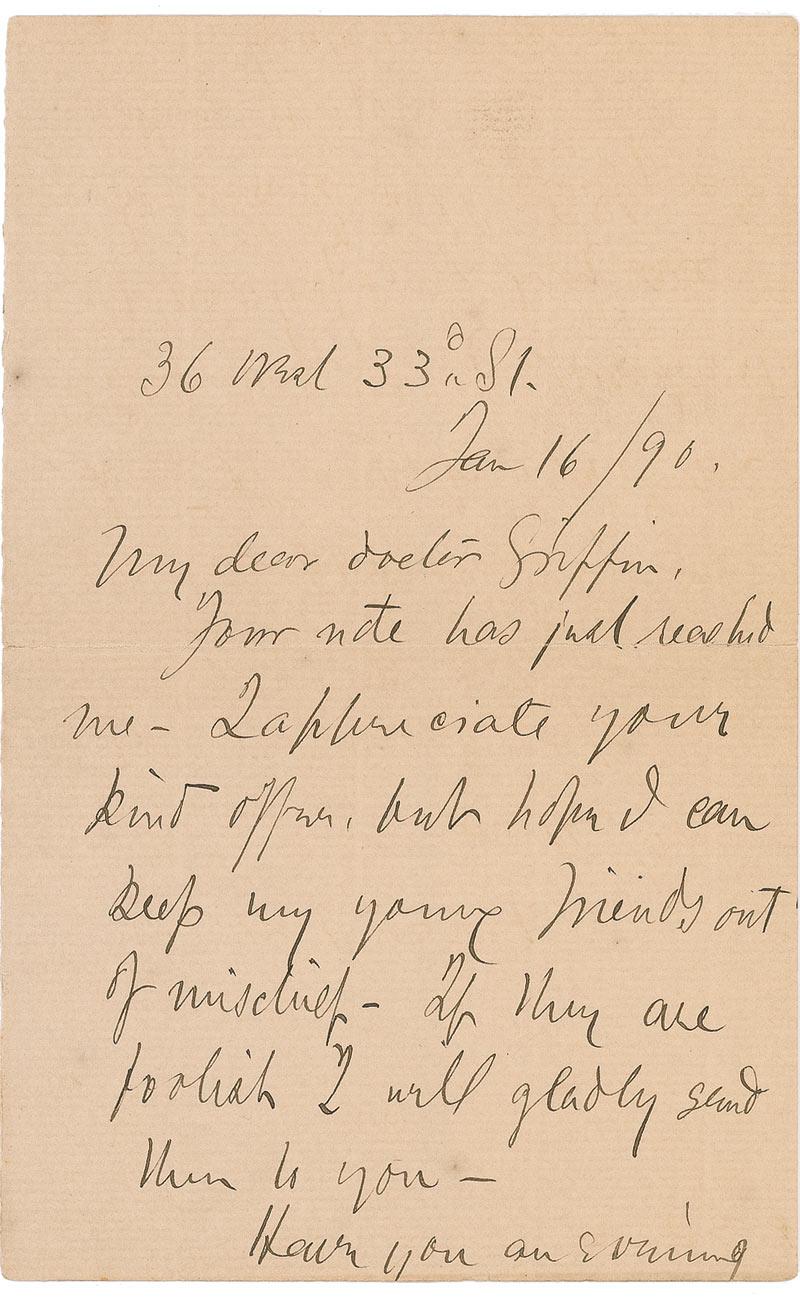 36 West 33d St.
Jan 16/90.
My dear doctor Griffin,
Your note has just reached
me – I appreciate your
kind offer, but hope I can
keep my young friends out
of mischief – If they are
foolish I will gladly send
them to you –
Have you an evening